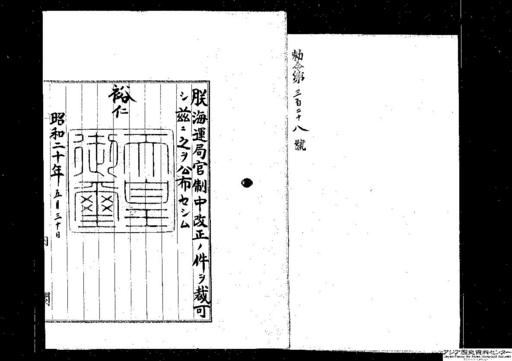 勅令第三百二十八號
朕海運局官制中改正ノ件ヲ裁可
シ茲ニ之ヲ公布セシム
裕仁
天皇御璽
昭和二十年五月三十日
内
閣
アジア歴史資料センター